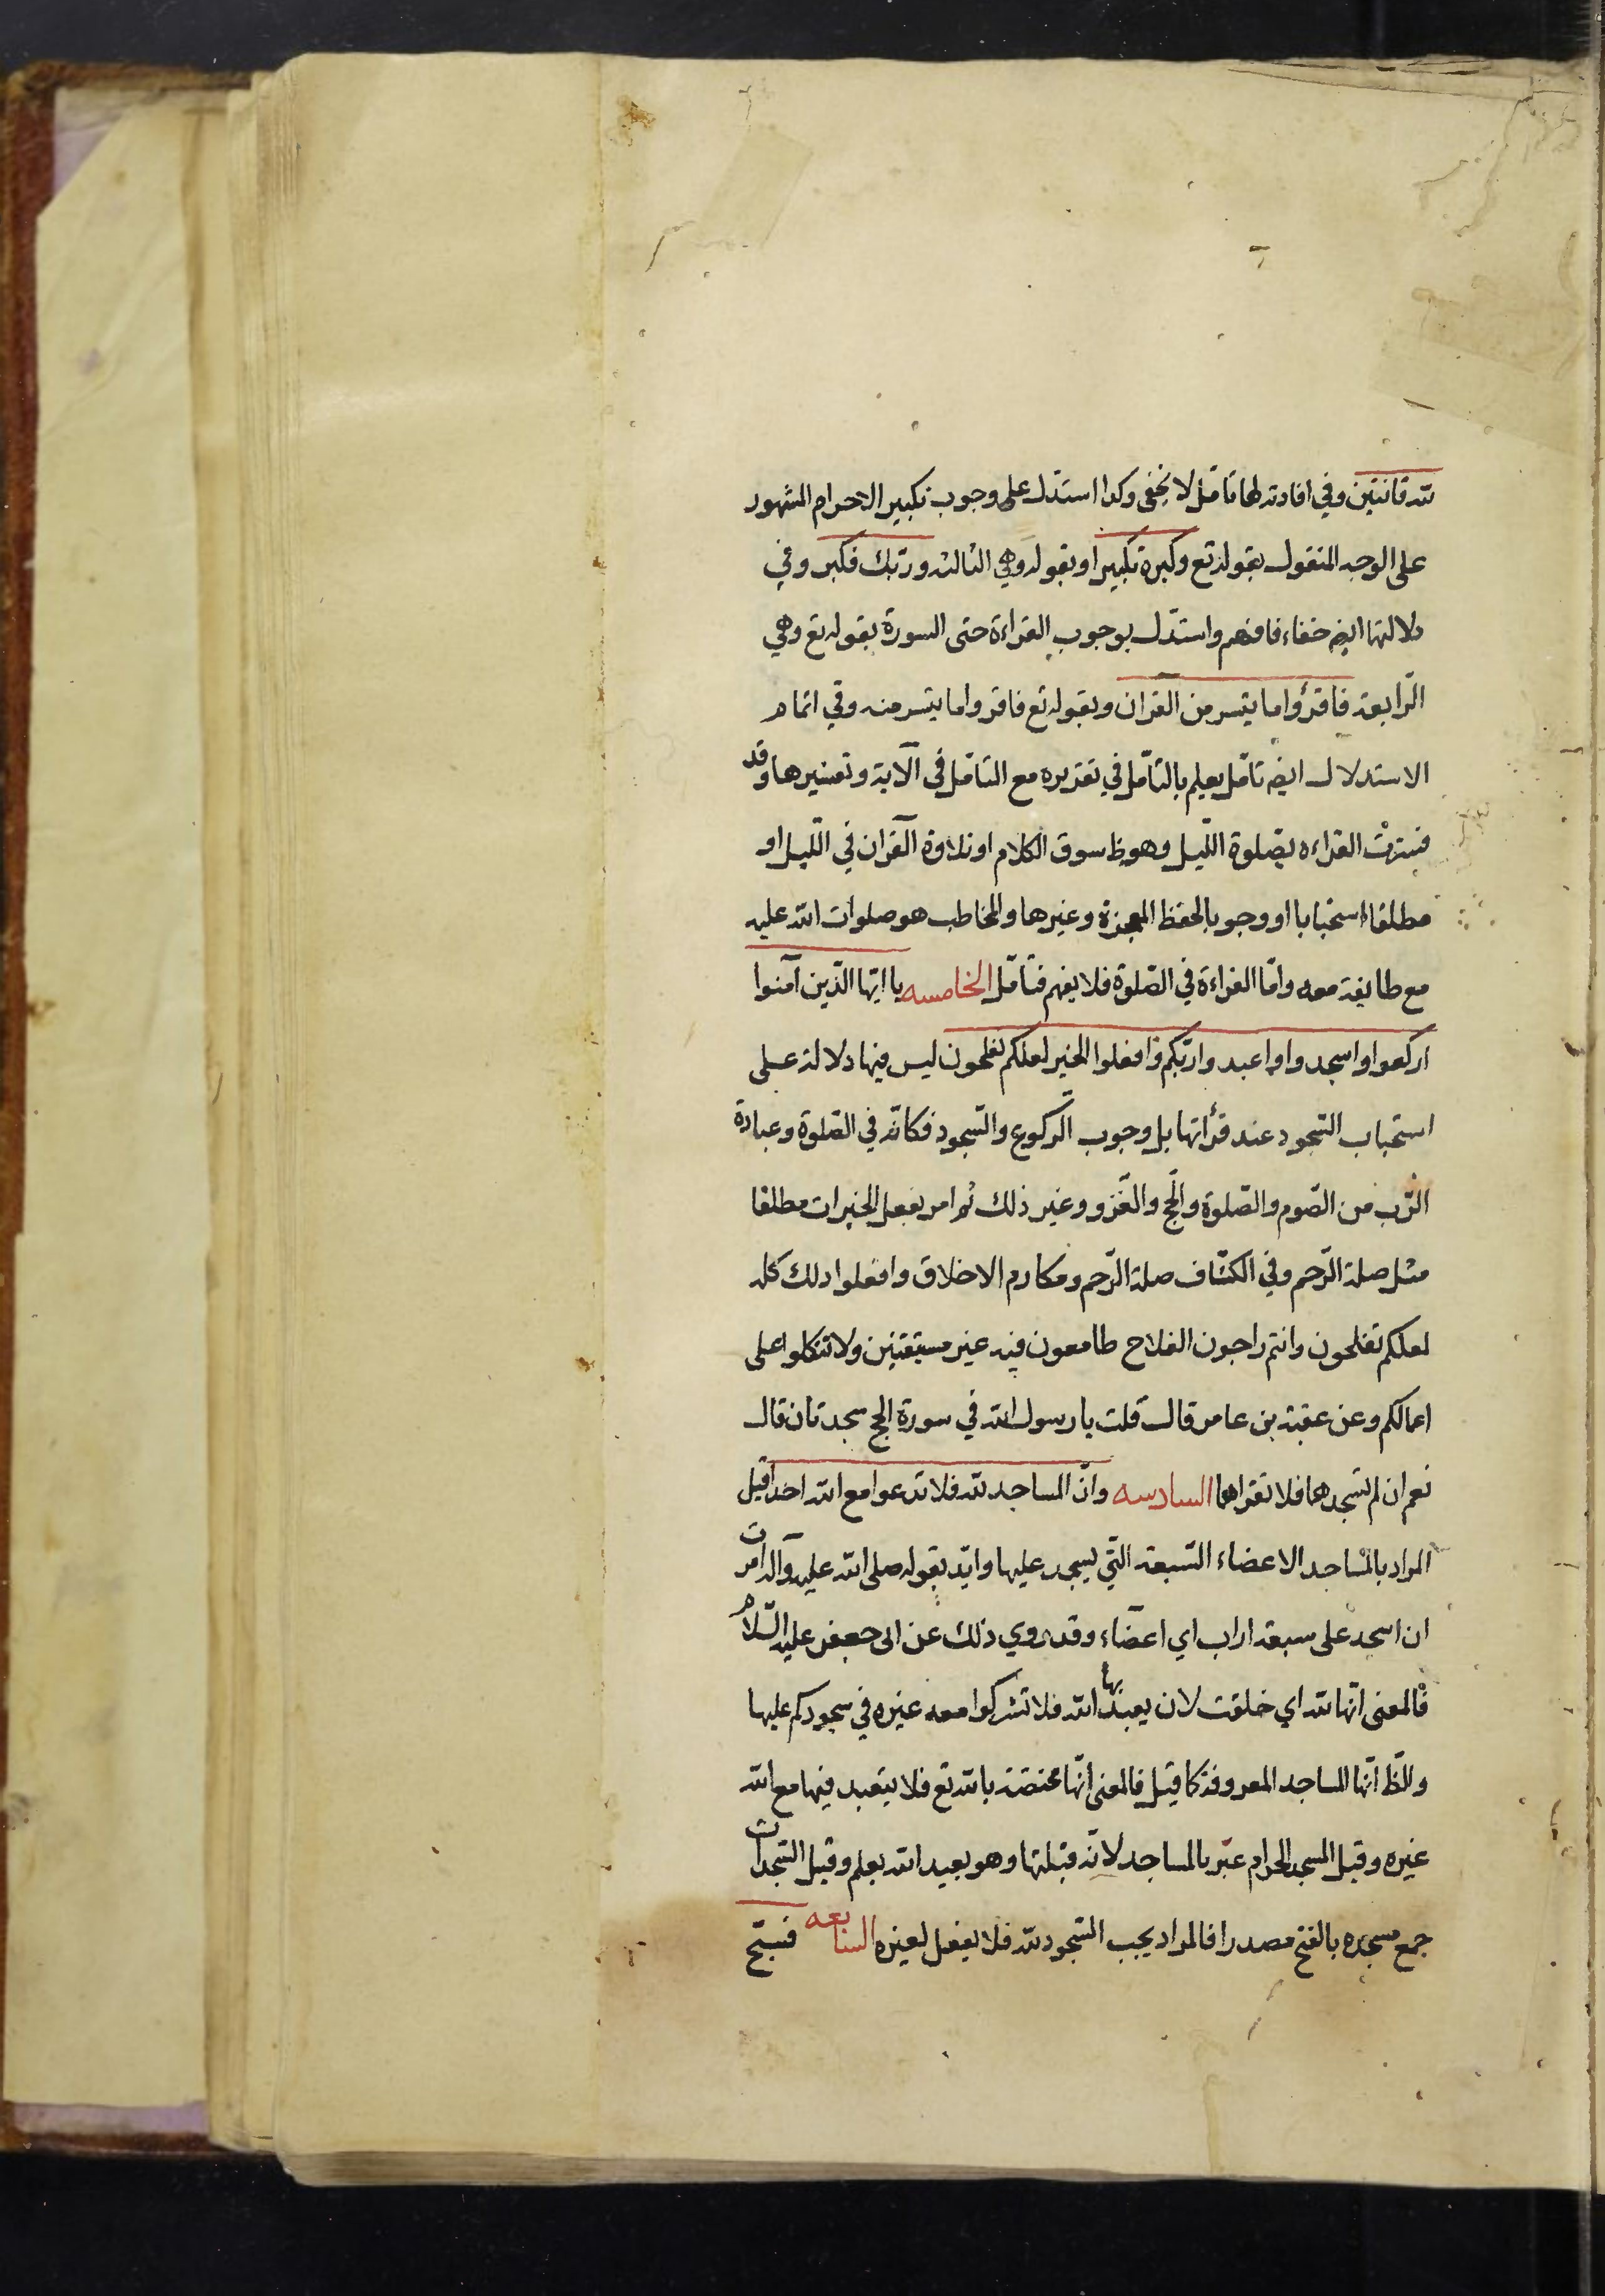 لله قانتين وفي افادته لها تامل لا يخفى وكذا استدل على وجوب تكبير الاحرام المشهور
على الوجه المنقول بقوله تع وكبره تكبيرا وبقوله وهي الثالثه وربك فكبر وفي
دلالتها ايض خفاء فافهم واستدل بوجوب القراءة حتى السورة بقوله تع وهي
الرّابعة فاقرؤا ما يتسر من القران وبقوله تع فاقروا ما يتسر منه وفي اتمام
الاستدلال ايض تامّل يعلم بالتأمّل في تقديره مع التامّل في الآية وتفسيرها وقد
فسّرت القراءه بصلوة اللّيل وهو ظ سوق الكلام او تلاوة القران في اللّيل او
مطلقا استحبابا او وجوبا لحفظ المعجزة وغيرها والمخاطب هو صلوات الله عليه
مع طايفة معه وامّا القراءة في الصّلوة فلا يفهم فتأمّل الخامسه يا ايّها الّذين آمنوا
اركعوا واسجدوا واعبدوا ربّكم وافعلوا الخير لعلكم تفلحون ليس فيها دلالة على
استحباب السّجود عند قرأتها بل وجوب الرّكوع والسّجود فكانّه في الصّلوة وعبادة
الرّب من الصّوم والصّلوة والحج والغزو وغير ذلك ثم امر بفعل الخيرات مطلقا
مثل صلة الرّحم وفي الكشّاف صلة الرّحم ومكارم الاخلاق وافعلوا ذلك كله
لعلكم تفلحون وانتم راجون الفلاح طامعون فيه غير مستيقنين ولا تتكلوا على
اعمالكم وعن عقبة بن عامر قال قلت يا رسول الله في سورة الحج سجدتان قال
نعم ان لم تسجدهما فلا تقراهما السادسه وانّ المساجد لله فلا تدعوا مع الله احدا قيل
المراد بالمساجد الاعضاء السّبعة الّتي يسجد عليها وايّد بقوله صلى الله عليه وآله امرت
ان اسجد على سبعة اراب اي اعضاء وقد روي ذلك عن ابى جعفر عليه السّلام
فالمعنى انّها لله اي خلقت لان يعبد بها الله فلا تشركوا معه غيره في سجودكم عليها
والظّ انّها المساجد المعروفة كما قيل فالمعنى انّها مختصّة بالله تع فلا يتعبد فيها مع الله
غيره وقيل المسجد الحرام عبّر بالمساجد لانّه قبلتها وهو بعيد الله يعلم وقيل السّجدات
جمع مسجده بالفتح مصدرا فالمراد يجب السّجود لله فلا يفعل لغيره السابعه فسبّح